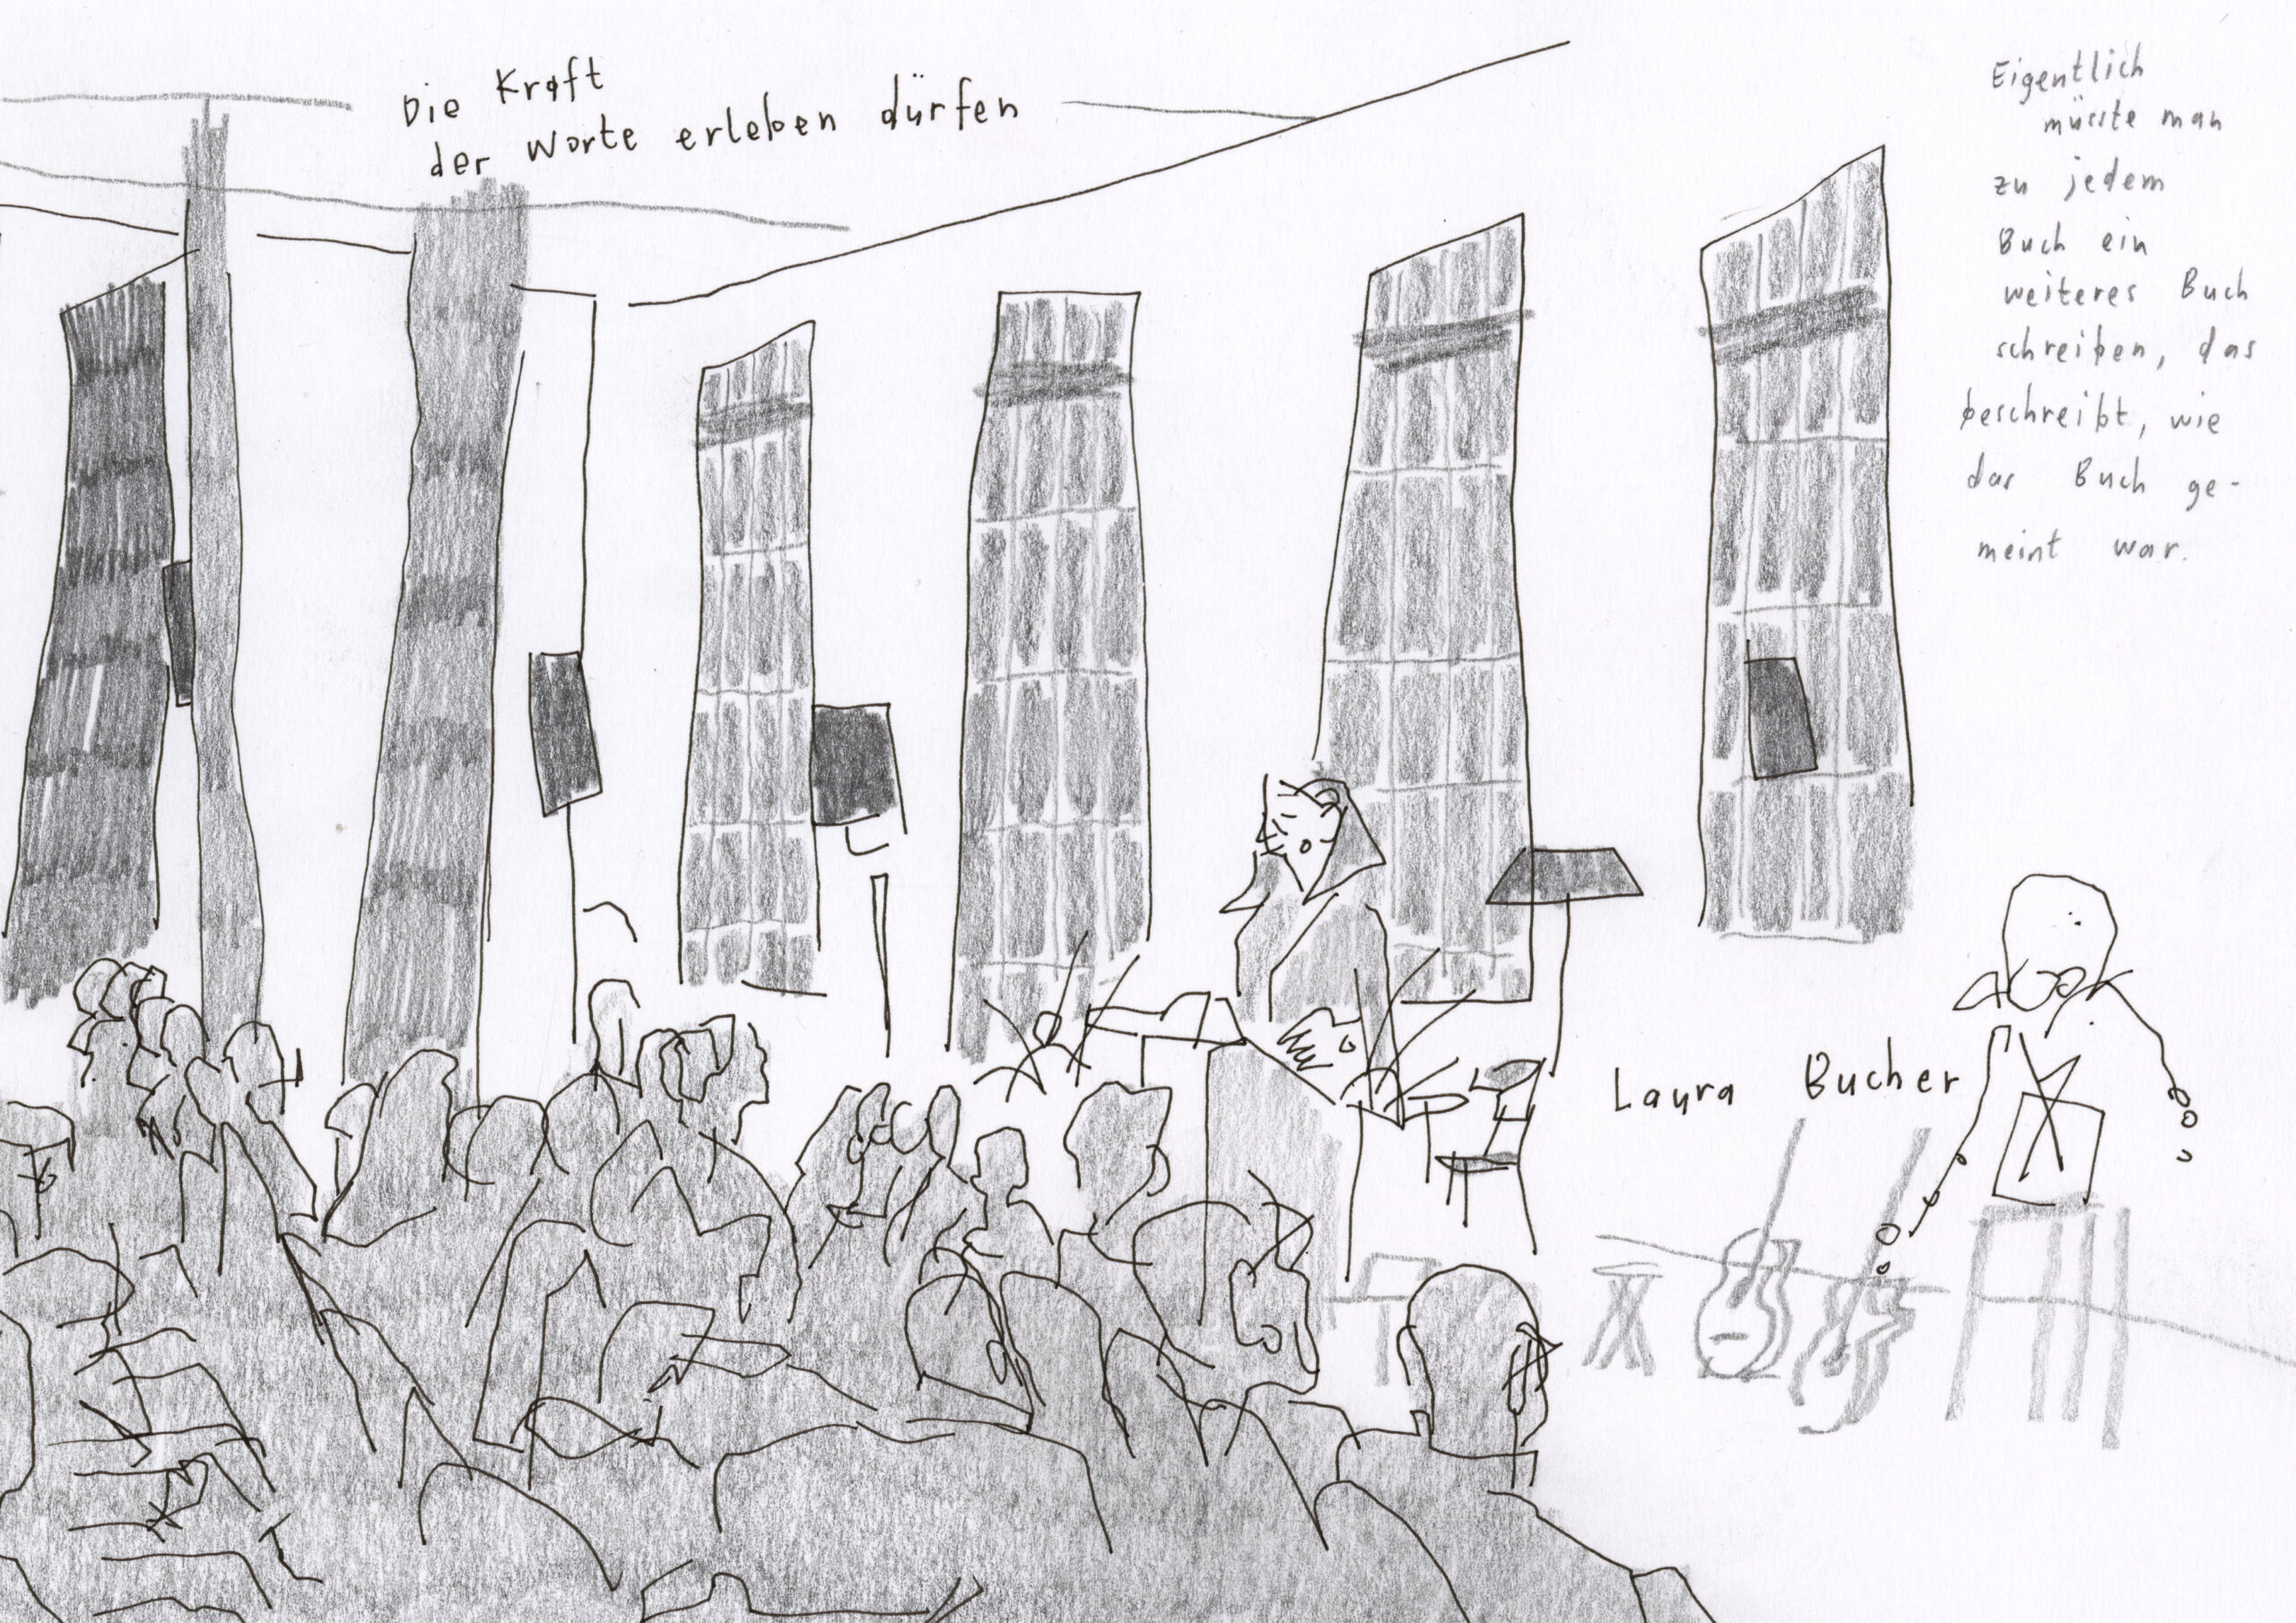 Die Kraft
der Worte erleben dürfen
Eigentlich
müsste man
zu jedem
Buch ein
weiteres Buch
schreiben, das
beschreibt, wie
das Buch ge-
meint war.
Laura Bucher